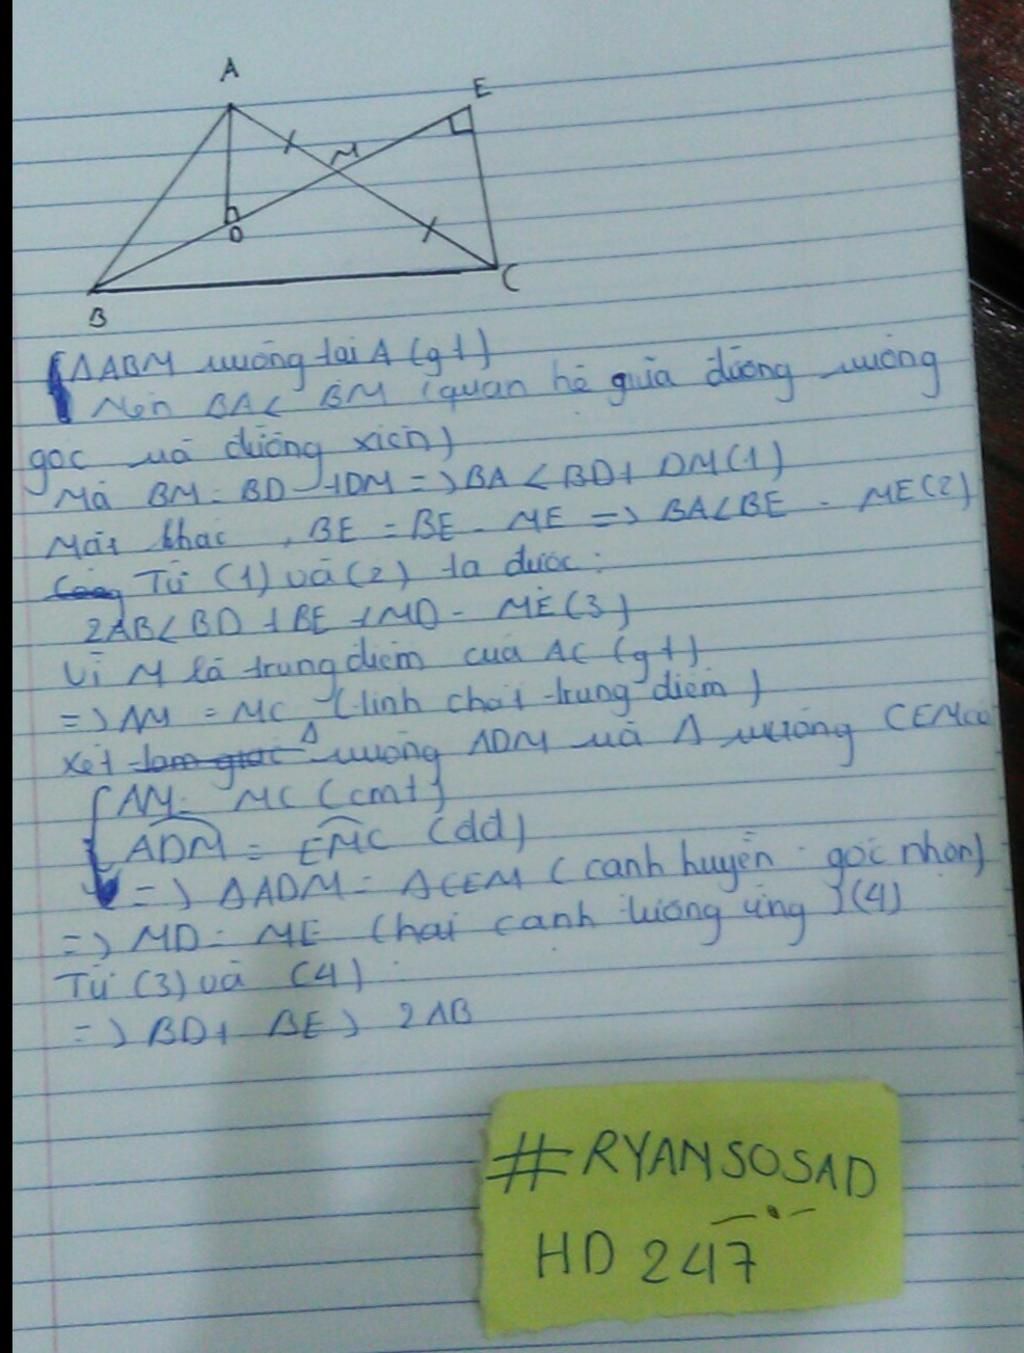 A
E
M
D
C
B
ΔABM vuông tại A (gt)
Nên BA < BM (quan hệ giữa đường vuông
góc và đường xiên)
Mà BM = BD + DM => BA < BD + DM (1)
Mặt khác, BE = BE - ME => BA < BE - ME (2)
Cộng Từ (1) và (2) ta được:
2AB < BD + BE + MD - ME (3)
Vì M là trung điểm của AC (gt)
=> AM = MC (tính chất trung điểm)
Xét tam giác Δ vuông ADM và Δ vuông CEM có
AM = MC (cmt)
ADM = EMC (dd)
=> ΔADM = ΔCEM (cạnh huyền - góc nhọn)
=> MD = ME (hai cạnh tương ứng) (4)
Từ (3) và (4)
=> BD + BE > 2AB
#RYANSOSAD
HD 247